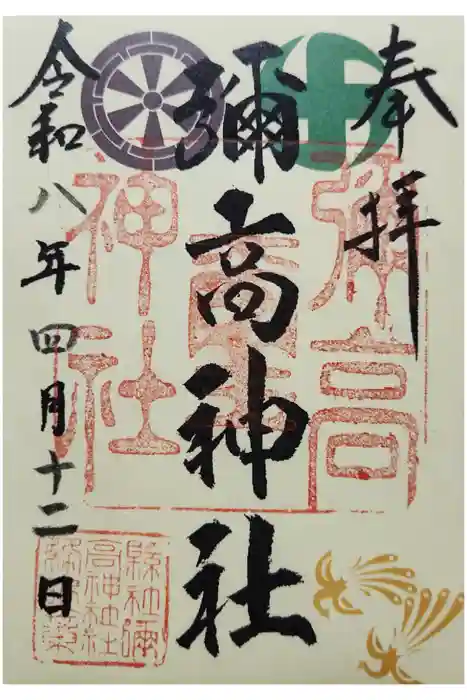 奉拝
彌高神社
令和八年四月十二日
彌高
神社
縣社彌
高神社